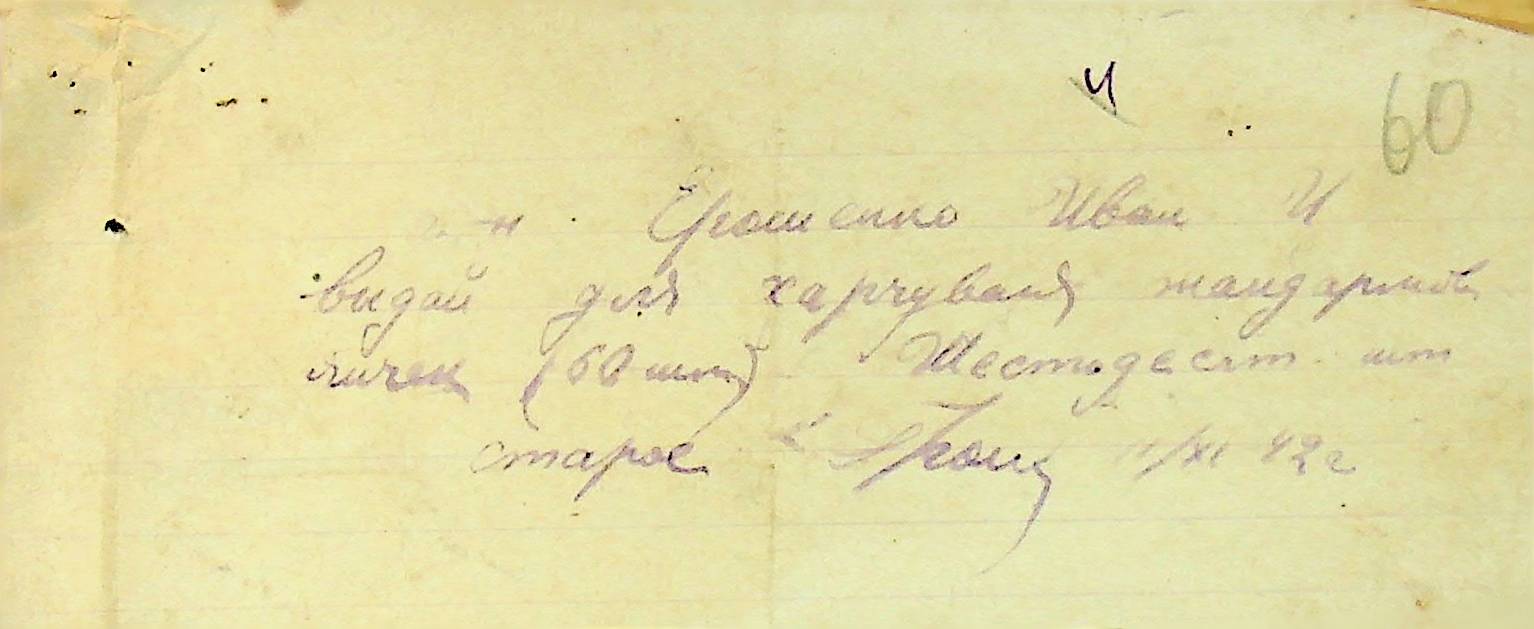 4
60
Ерошенко Иван И
выдай для харчуваня жандармов
яичек (60 шт) Шестьдесят шт
старос
/XI 42 г